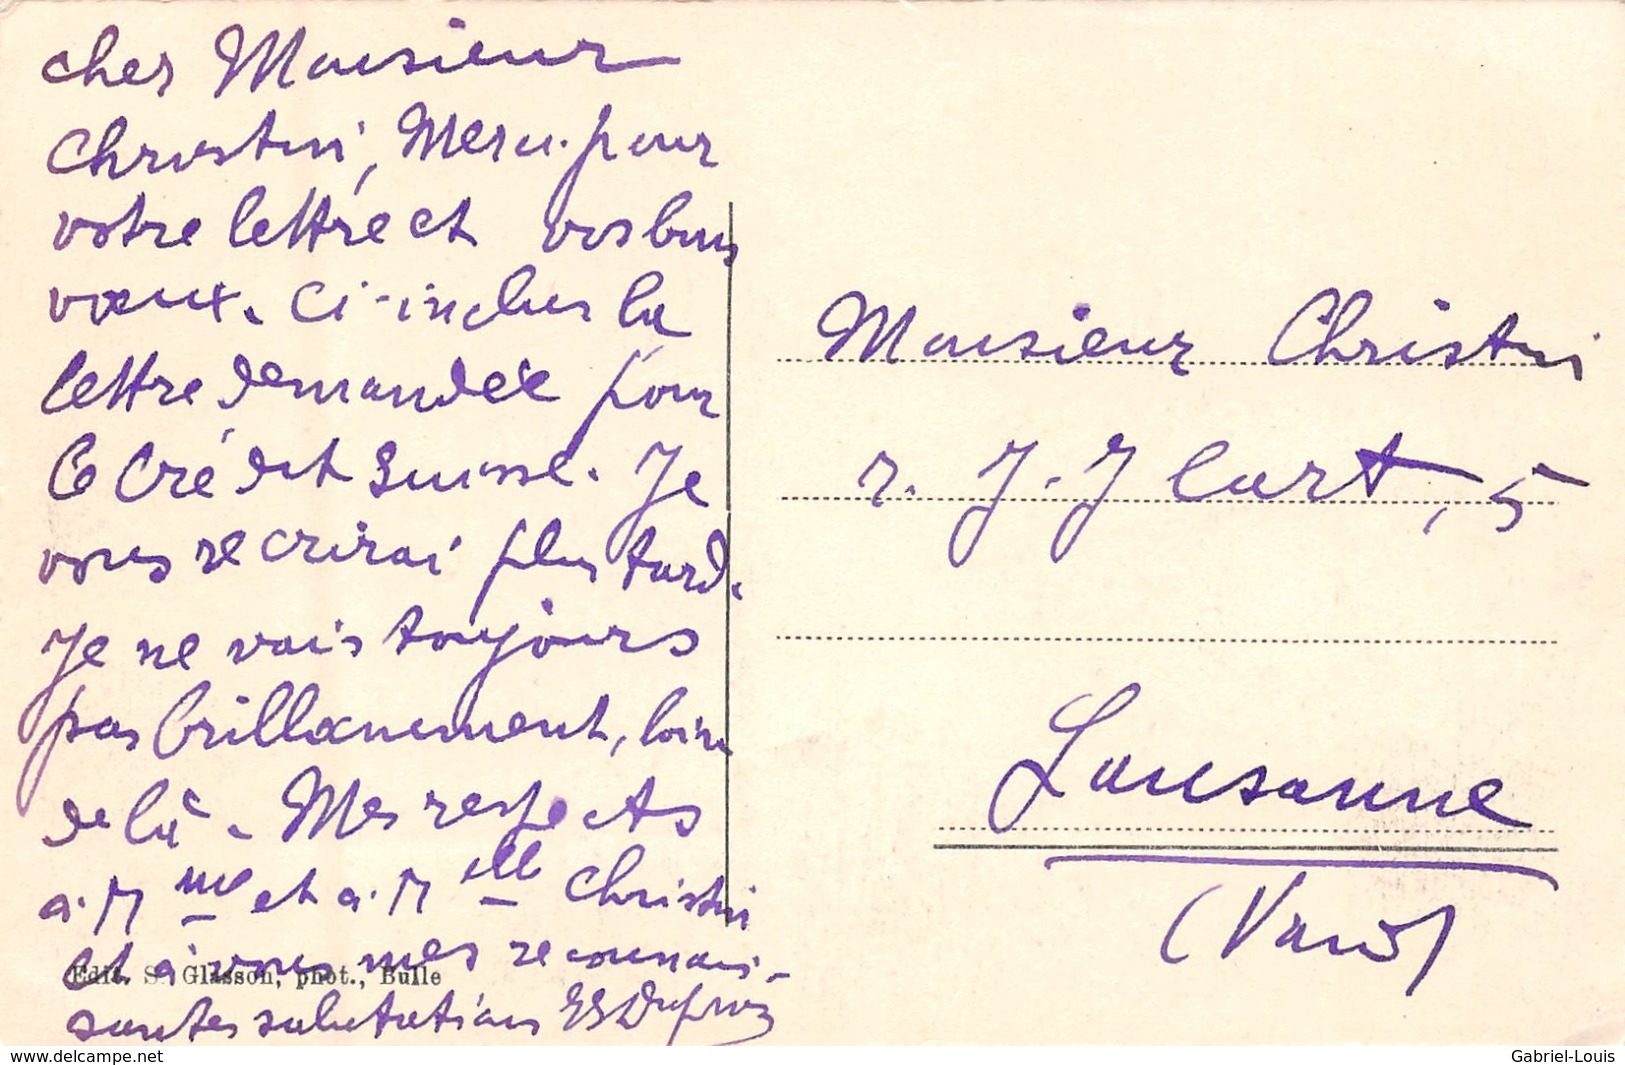 Cher Monsieur
Christin, Merci pour
votre lettre et vos bons
vœux. Ci-inclus la
lettre demandée pour
le Crédit Suisse. Je
vous récrirai plus tard.
Je ne vais toujours
pas brillamment, loin
de là. Mes respects
à Mme et à Mlle Christin
et à vous mes reconnais-
santes salutations
Edit. S. Glasson, phot., Bulle
Monsieur Christin
r. J.-J Cart, 5
Lausanne
(Vaud)
www.delcampe.net
Gabriel-Louis